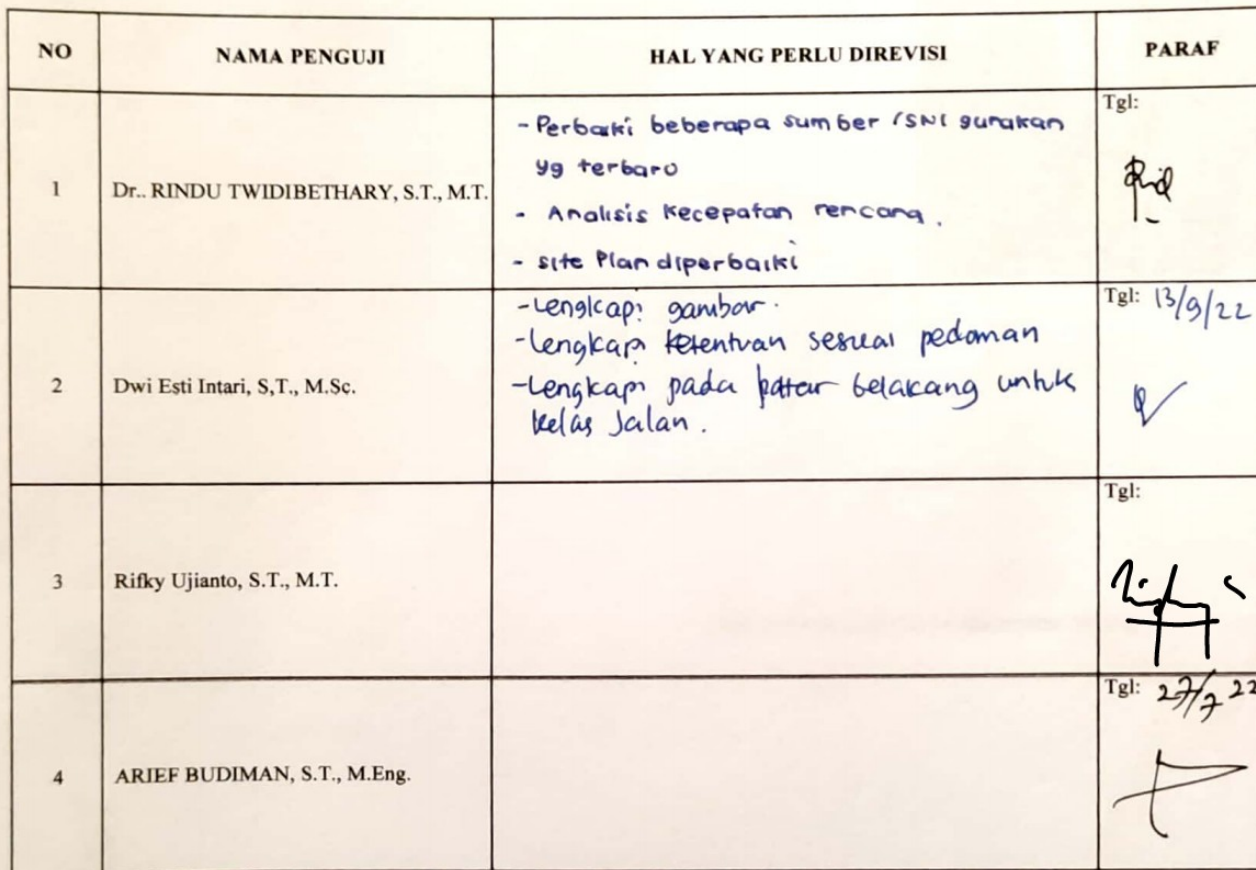 NO NAMA PENGUJI HAL YANG PERLU DIREVISI PARAF
1 Dr.. RINDU TWIDIBETHARY, S.T., M.T.
- Perbaiki beberapa sumber /SNI gunakan
yg terbaro
- Analisis Kecepatan rencana.
- site Plan diperbaiki
Tgl:
2 Dwi Esti Intari, S,T., M.Sc.
- Lengkapi gambar.
- Lengkapi ketentuan sesuai pedoman
- Lengkapi pada latar belakang untuk
kelas Jalan.
Tgl: 13/9/22
3 Rifky Ujianto, S.T., M.T.
Tgl:
4 ARIEF BUDIMAN, S.T., M.Eng.
Tgl: 27/7 22